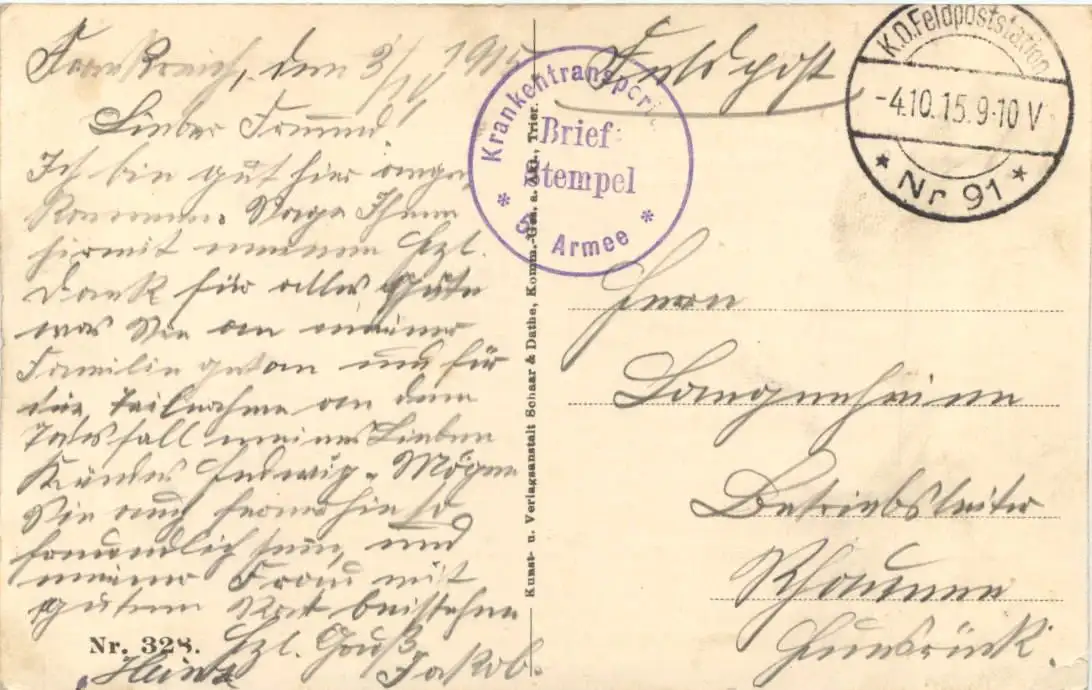 Frankreich, den 3/10 1915
Lieber Freund
Ich bin gut hier ange
kommen. Sage Ihnen
hirmit meinen Hzl.
Dank für alles Gute
was Sie an meiner
Familie getan und für
die Teilnahme an dem
Todesfall meines Lieben
Kindes Hedwig. Mögen
Sie auch fernerhin so
freundlich sein, und
meiner Frau mit
gutem Rat beistehen
Hzl. Gruß
Jakob.
Nr. 328.
Kunst- u. Verlagsanstalt Schaar & Dathe, Komm.-Ges. a. Akt., Trier.
Feldpost
Krankentransport
Brief
Stempel
Armee
K.D. Feldpoststation
-4.10.15.9-10 V
* Nr 91 *
Herrn
Langenheim
Betriebsleiter
Rhaunen
Hunsrück.